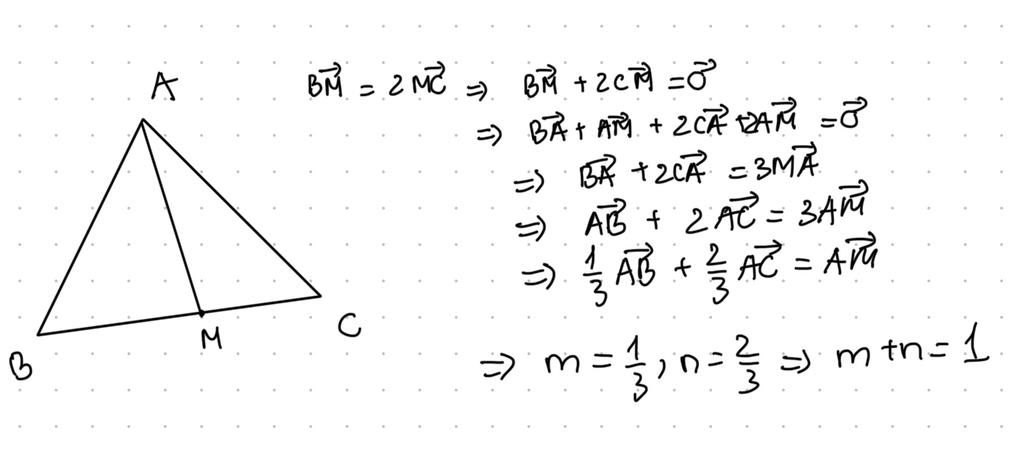 A
B
M
C
$\overrightarrow{BM} = 2\overrightarrow{MC} \Rightarrow \overrightarrow{BM} + 2\overrightarrow{CM} = \vec{0}$
$\Rightarrow \overrightarrow{BA} + \overrightarrow{AM} + 2\overrightarrow{CA} + 2\overrightarrow{AM} = \vec{0}$
$\Rightarrow \overrightarrow{BA} + 2\overrightarrow{CA} = 3\overrightarrow{MA}$
$\Rightarrow \overrightarrow{AB} + 2\overrightarrow{AC} = 3\overrightarrow{AM}$
$\Rightarrow \frac{1}{3}\overrightarrow{AB} + \frac{2}{3}\overrightarrow{AC} = \overrightarrow{AM}$
$\Rightarrow m = \frac{1}{3}, n = \frac{2}{3} \Rightarrow m + n = 1$